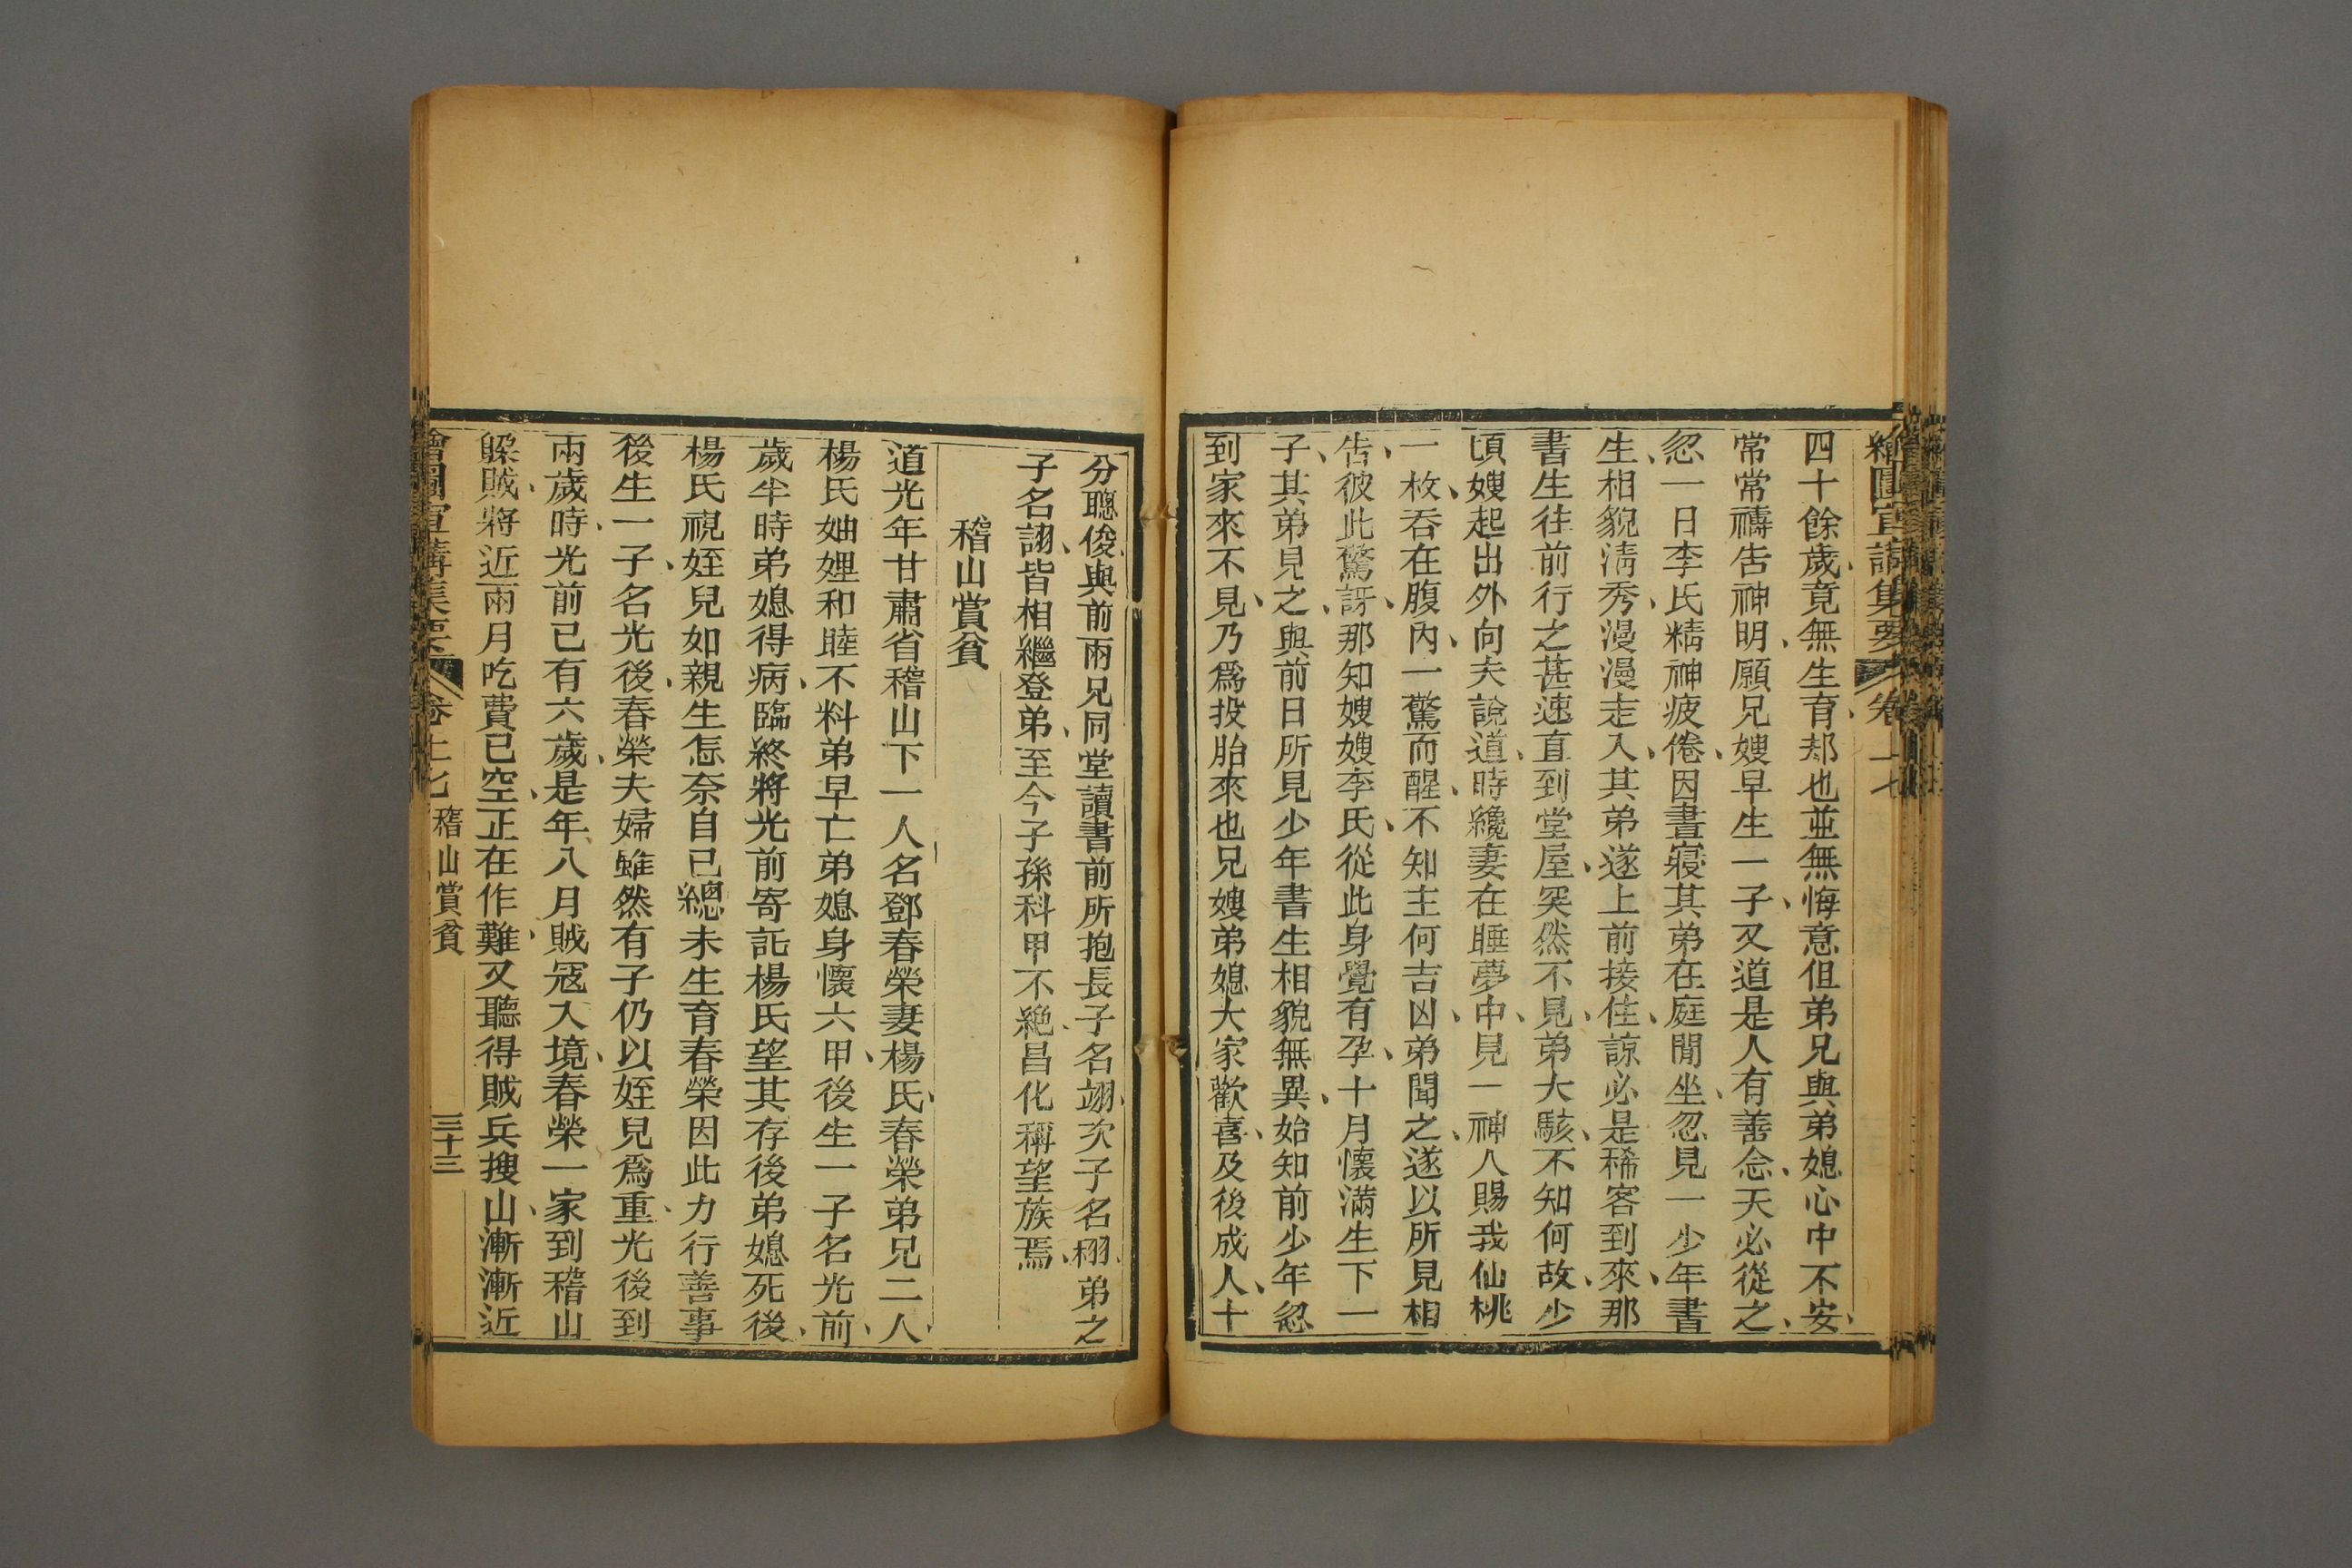 繪圖宣講集要 卷十七
四十餘歲、竟無生育、却也並無悔意但弟兄與弟媳心中不安、
常常禱告神明、願兄嫂早生一子、又道是人有善念、天必從之、
忽一日李氏精神疲倦、因晝寢其弟在庭閒坐、忽見一少年書
生、相貌淸秀、漫漫走入、其弟遂上前接住、諒必是稀客到來、那
書生往前行之甚速直到堂屋、突然不見、弟大駭、不知何故、少
頃嫂起出外向夫說道、時纔妻在睡夢中、見一神人賜我仙桃
一枚、吞在腹內、一驚而醒、不知主何吉凶、弟聞之、遂以所見相
告、彼此驚訝、那知嫂嫂李氏、從此身覺有孕、十月懷滿生下一
子、其弟見之、與前日所見少年書生相貌無異、始知前少年忽
到家來不見、乃爲投胎來也兄嫂弟媳大家歡喜、及後成人、十
分聰俊、與前兩兄同堂讀書前所抱長子名翊、次子名栩、弟之
子名詡、皆相繼登弟、至今子孫科甲不絕、昌化稱望族焉、
稽山賞貧
道光年甘肅省稽山下一人名鄧春榮妻楊氏、春榮弟兄二人、
楊氏妯娌和睦、不料弟早亡弟媳身懷六甲、後生一子名光前、
歲半時弟媳得病、臨終將光前寄託楊氏望其存後弟媳死後、
楊氏視姪兒如親生怎奈自已總未生育春榮因此力行善事
後生一子、名光後、春榮夫婦雖然有子仍以姪兒爲重、光後到
兩歲時、光前已有六歲、是年八月賊冦入境、春榮一家到稽山
躱賊、將近兩月吃費已空、正在作難、又聽得賊兵搜山、漸漸近
繪圖宣講集要 卷十七 稽山賞貧 三十三